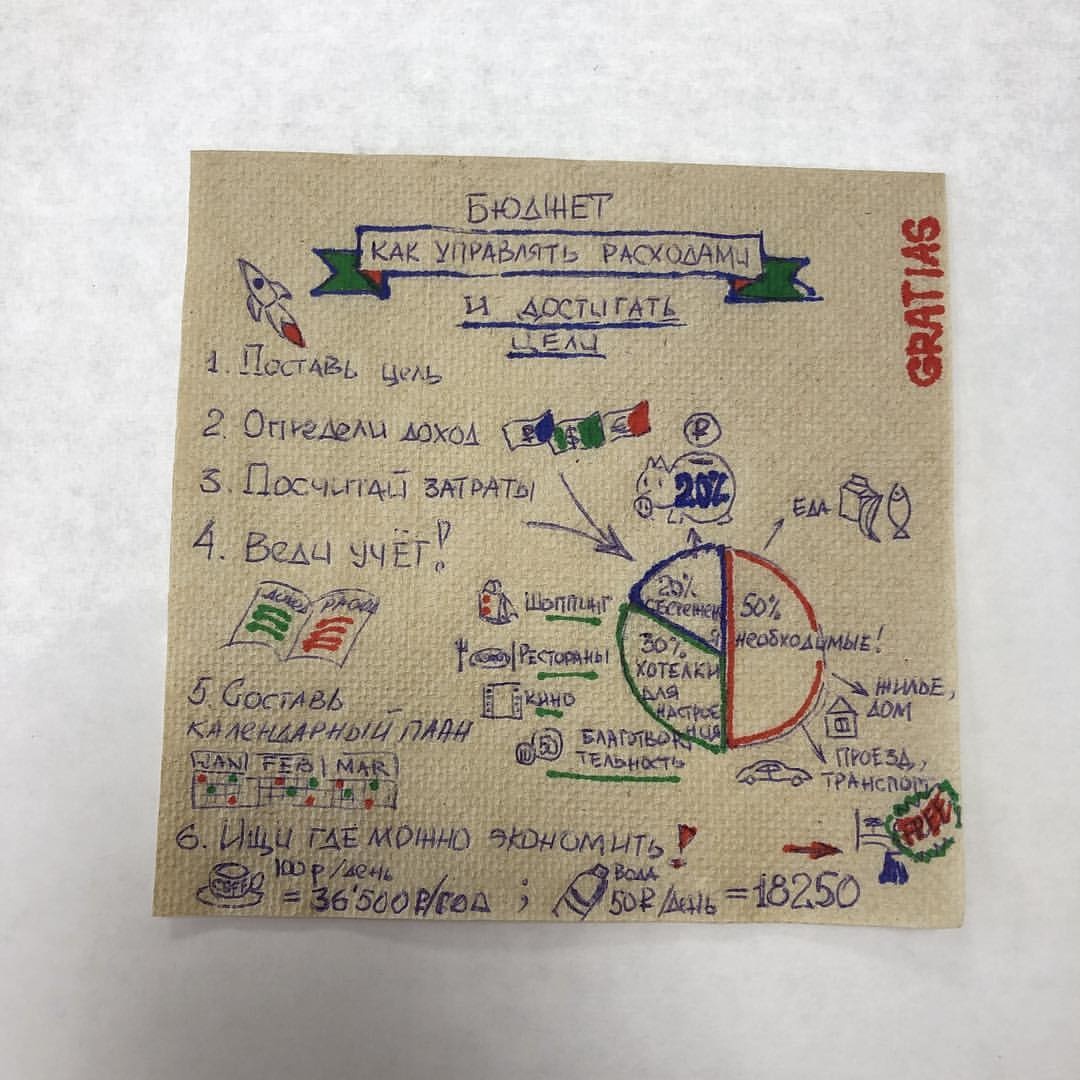 БЮДЖЕТ
КАК УПРАВЛЯТЬ РАСХОДАМИ
И ДОСТИГАТЬ
ЦЕЛИ
GRATIAS
1. Поставь цель
2. Определи доход
₽ $ €
3. Посчитай затраты
₽
20%
4. Веди учёт!
ДОХОД РАСХОД
ЕДА
20%
СБЕРЕЖЕН
Я
50%
НЕОБХОДИМЫЕ!
30%
ХОТЕЛКИ
ДЛЯ
НАСТРОЕ
НИЯ
ШОППИНГ
РЕСТОРАНЫ
КИНО
БЛАГОТВОРИ
ТЕЛЬНОСТЬ
ЖИЛЬЕ,
ДОМ
ПРОЕЗД,
ТРАНСПОРТ
5. Составь
КАЛЕНДАРНЫЙ ПЛАН
JAN FEB MAR
6. Ищи где можно экономить!
FREE
COFFE
100 р/день
= 36'500 ₽/год ;
ВОДА
50₽/день = 18250